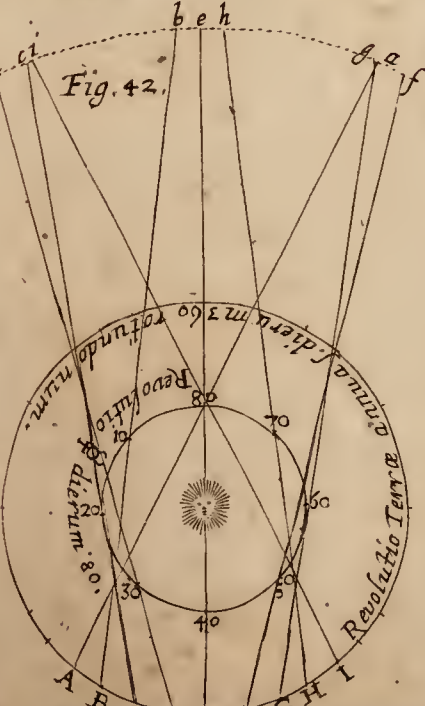 b e h
c i
g a f
Fig. 42.
Revolutio Terræ annua s. dierum 360 rotundo num.
Revolutio ☿ dierum .80.
80
10
70
20
60
30
50
40
A
B
G
H
I